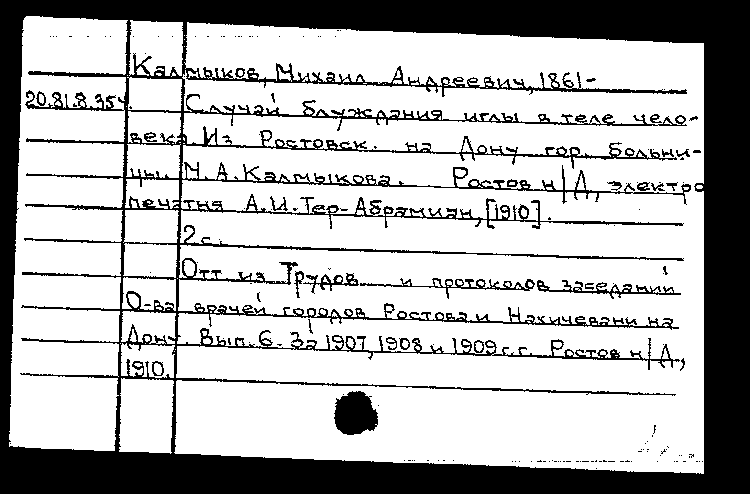 Калмыков, Михаил Андреевич, 1861-
20.81.8.354. Случай блуждания иглы в теле чело-
века Из Ростовск. на Дону гор. больни-
цы. М.А.Калмыкова. Ростов н/Д, электро
печатня А.И.Тер-Абрамиан, [1910].
2 с.
Отт из Трудов и протоколов заседаний
О-ва врачей городов Ростова и Нахичевани на
Дону. Вып. 6. За 1907, 1908 и 1909 г.г. Ростов н/Д,
1910.